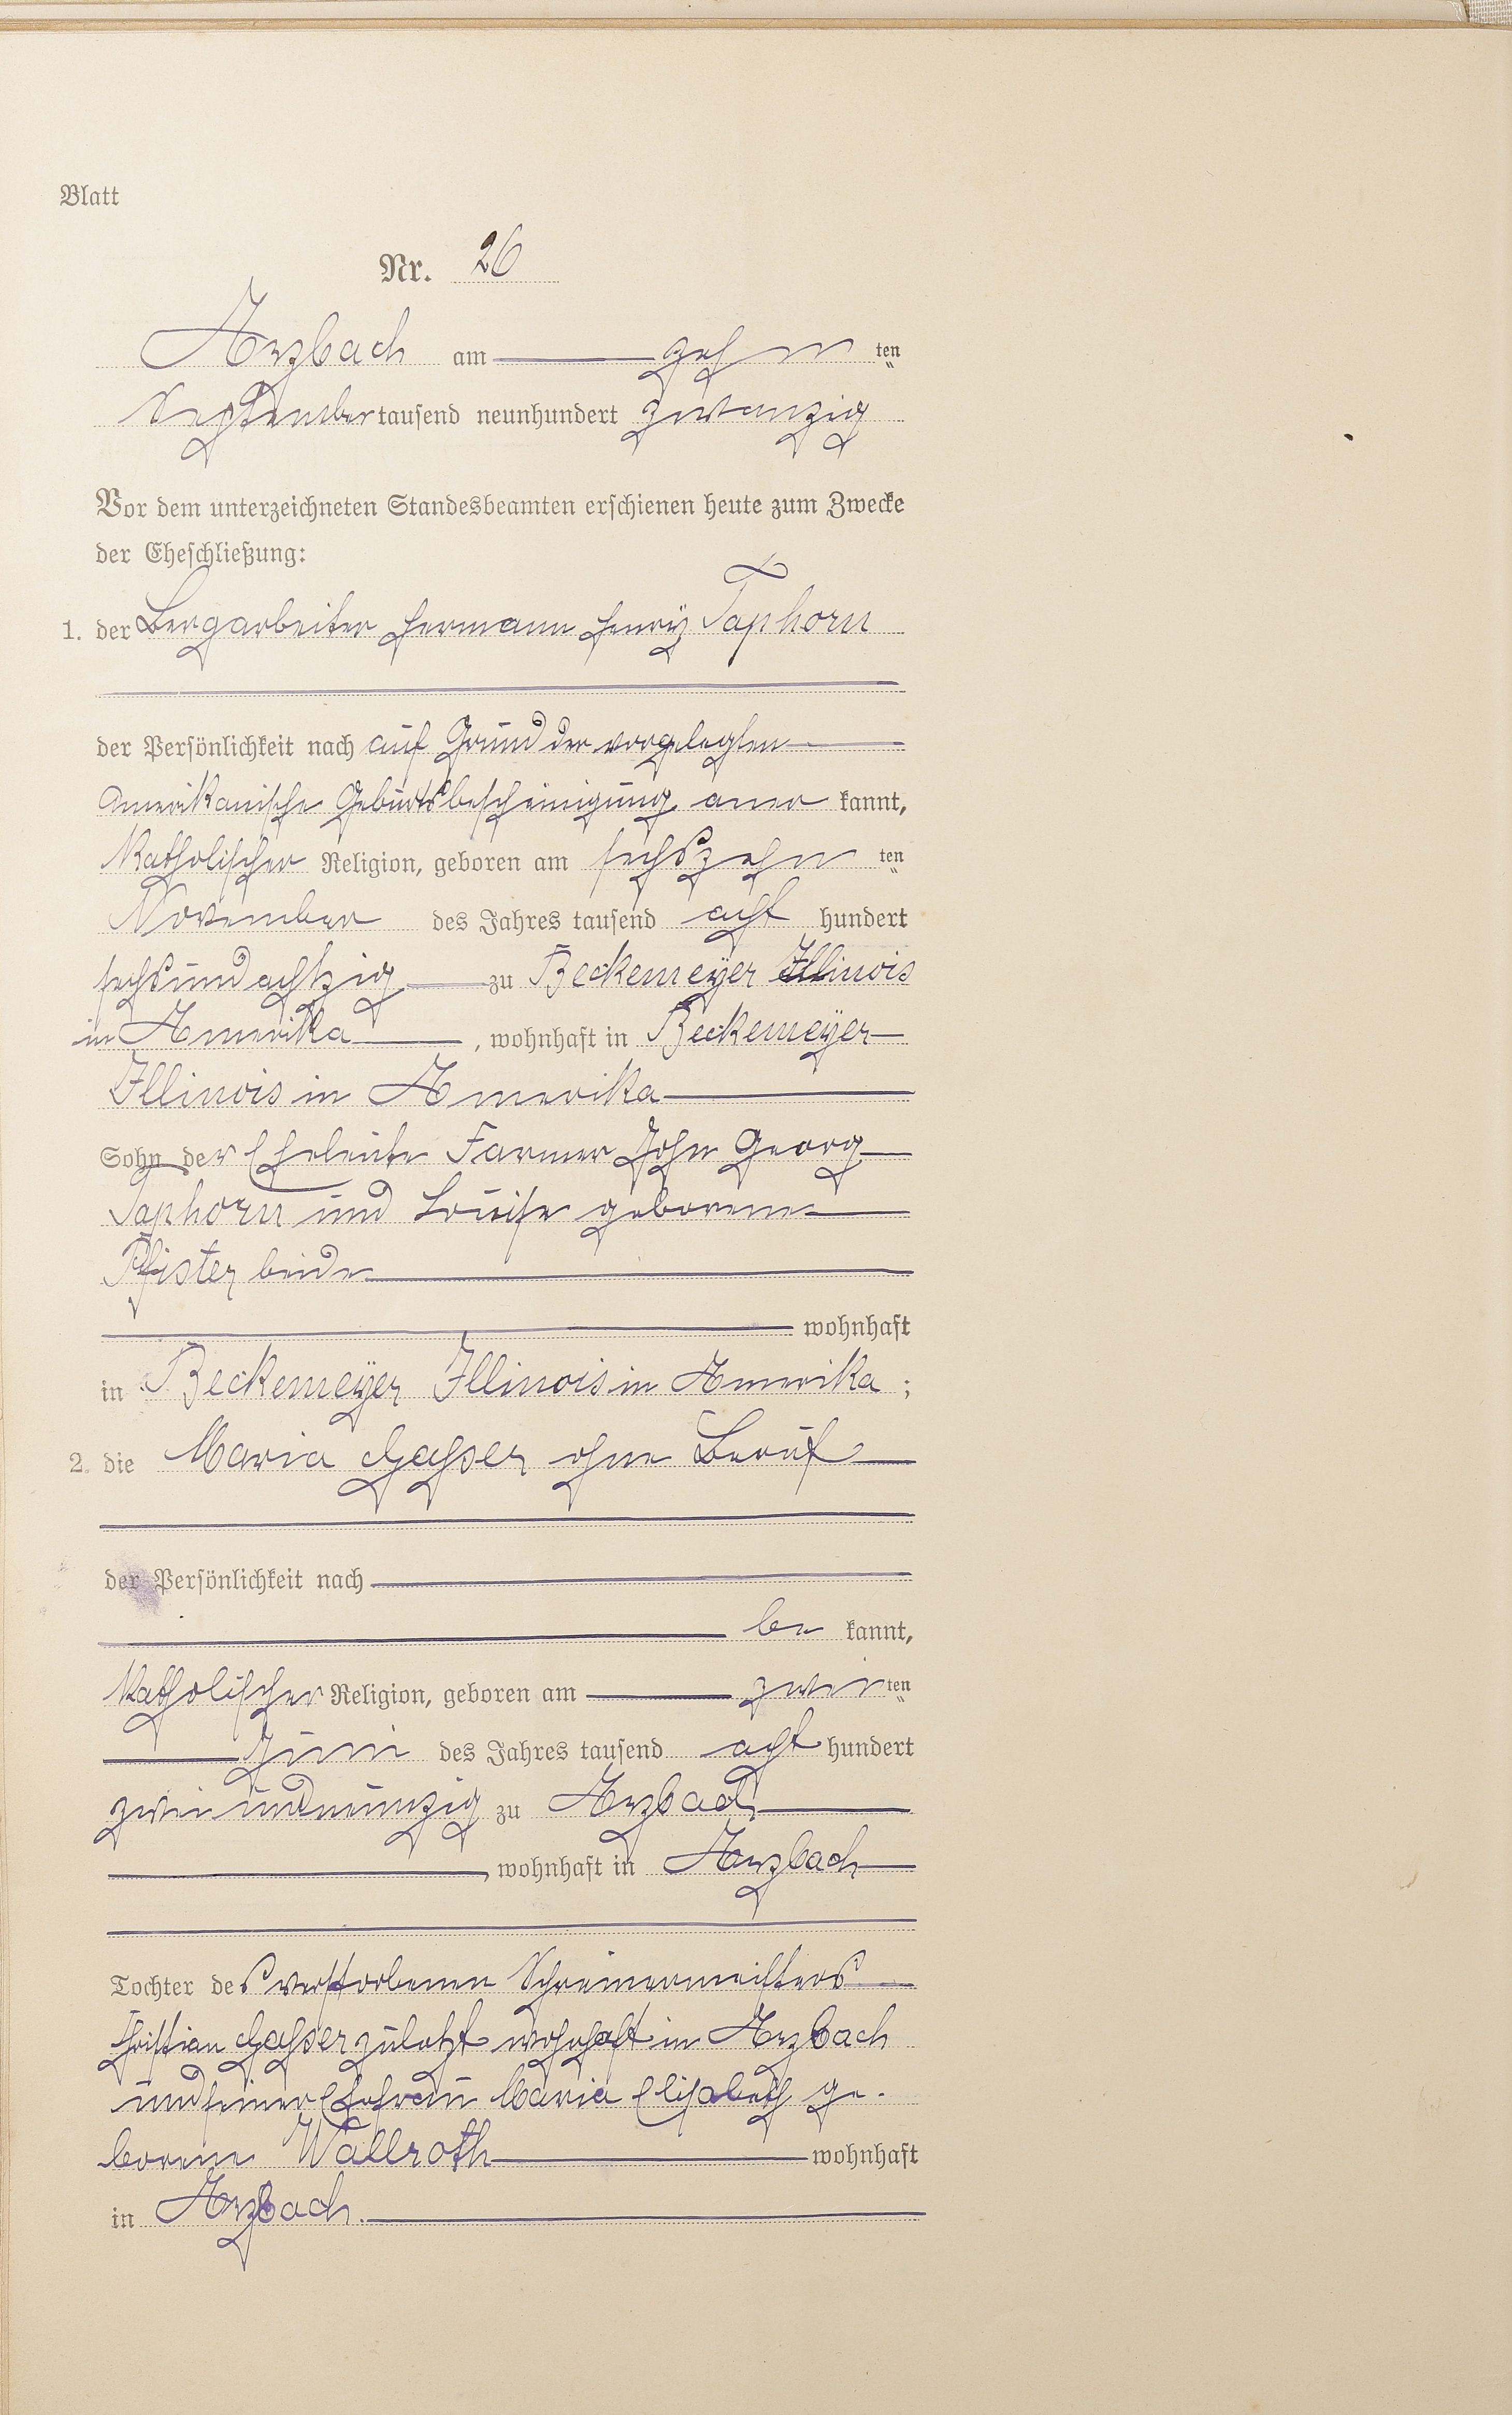 Blatt
Nr. 26
Arzbach am zehn ten
September tausend neunhundert zwanzig
Vor dem unterzeichneten Standesbeamten erschienen heute zum Zwecke
der Eheschließung:
1. der Bergarbeiter Hermann Henry Taphorn
der Persönlichkeit nach auf Grund der vorgelegten
Amerikanische Geburtsbescheinigung aner kannt,
Katholischer Religion, geboren am sechszehn ten
November des Jahres tausend acht hundert
sechsundachtzig zu Beckemeyer Illinois
in Amerika, wohnhaft in Beckemeyer
Illinois in Amerika
Sohn der Eheleute Farmer John Georg
Taphorn und Louise geborene
Pfister beide
wohnhaft
in Beckemeyer Illinois in Amerika;
2. die Maria Gasser ohne Beruf
der Persönlichkeit nach
be kannt,
Katholischer Religion, geboren am zwei ten
Juni des Jahres tausend acht hundert
zwei undneunzig zu Arzbach
, wohnhaft in Arzbach
Tochter des verstorbenen Schreinermeisters
Christian Gasser zuletzt wohnhaft in Arzbach
und seiner Ehefrau Maria Elisabeth ge-
borene Wallroth wohnhaft
in Arzbach.